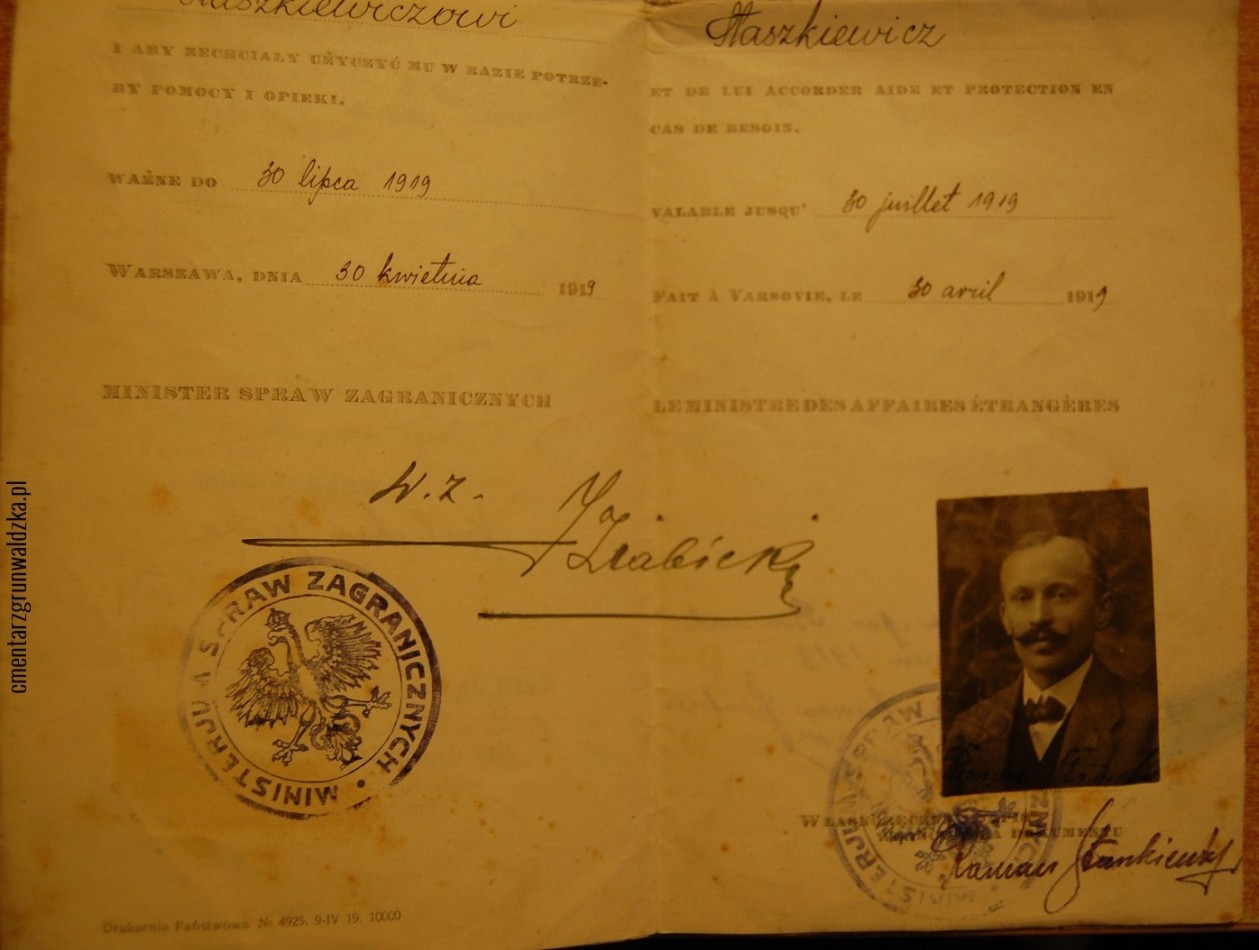 Staszkiewiczowi
I ABY ZECHCIAŁY UŻYCZYĆ MU W RAZIE POTRZE-
BY POMOCY I OPIEKI.
WAŻNE DO 30 lipca 1919
WARSZAWA, DNIA 30 kwietnia 1919
MINISTER SPRAW ZAGRANICZNYCH
Staszkiewicz
ET DE LUI ACCORDER AIDE ET PROTECTION EN
CAS DE BESOIN.
VALABLE JUSQU' 30 juillet 1919
FAIT À VARSOVIE, LE 30 avril 1919
LE MINISTRE DES AFFAIRES ÉTRANGÈRES
w. z.
MINISTERJUM SPRAW ZAGRANICZNYCH
DOKUMENTU
Roman
Drukarnia Państwowa № 4925. 9-IV 19. 10000
cmentarzgrunwaldzka.pl